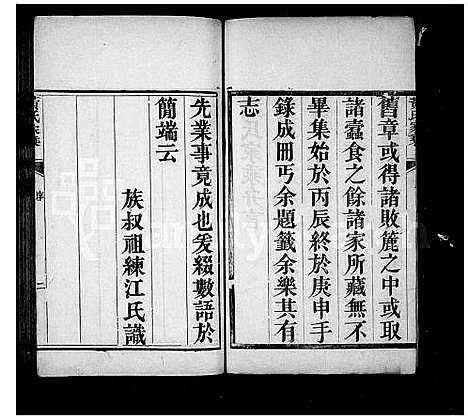 舊章或得諸敗簏之中或取
諸蠹食之餘諸家所藏無不
畢集始於丙辰終於庚申手
錄成冊丐余題籤余樂其有
志
先業事竟成也爰綴數語於
簡端云
族叔祖練江氏識
序
二